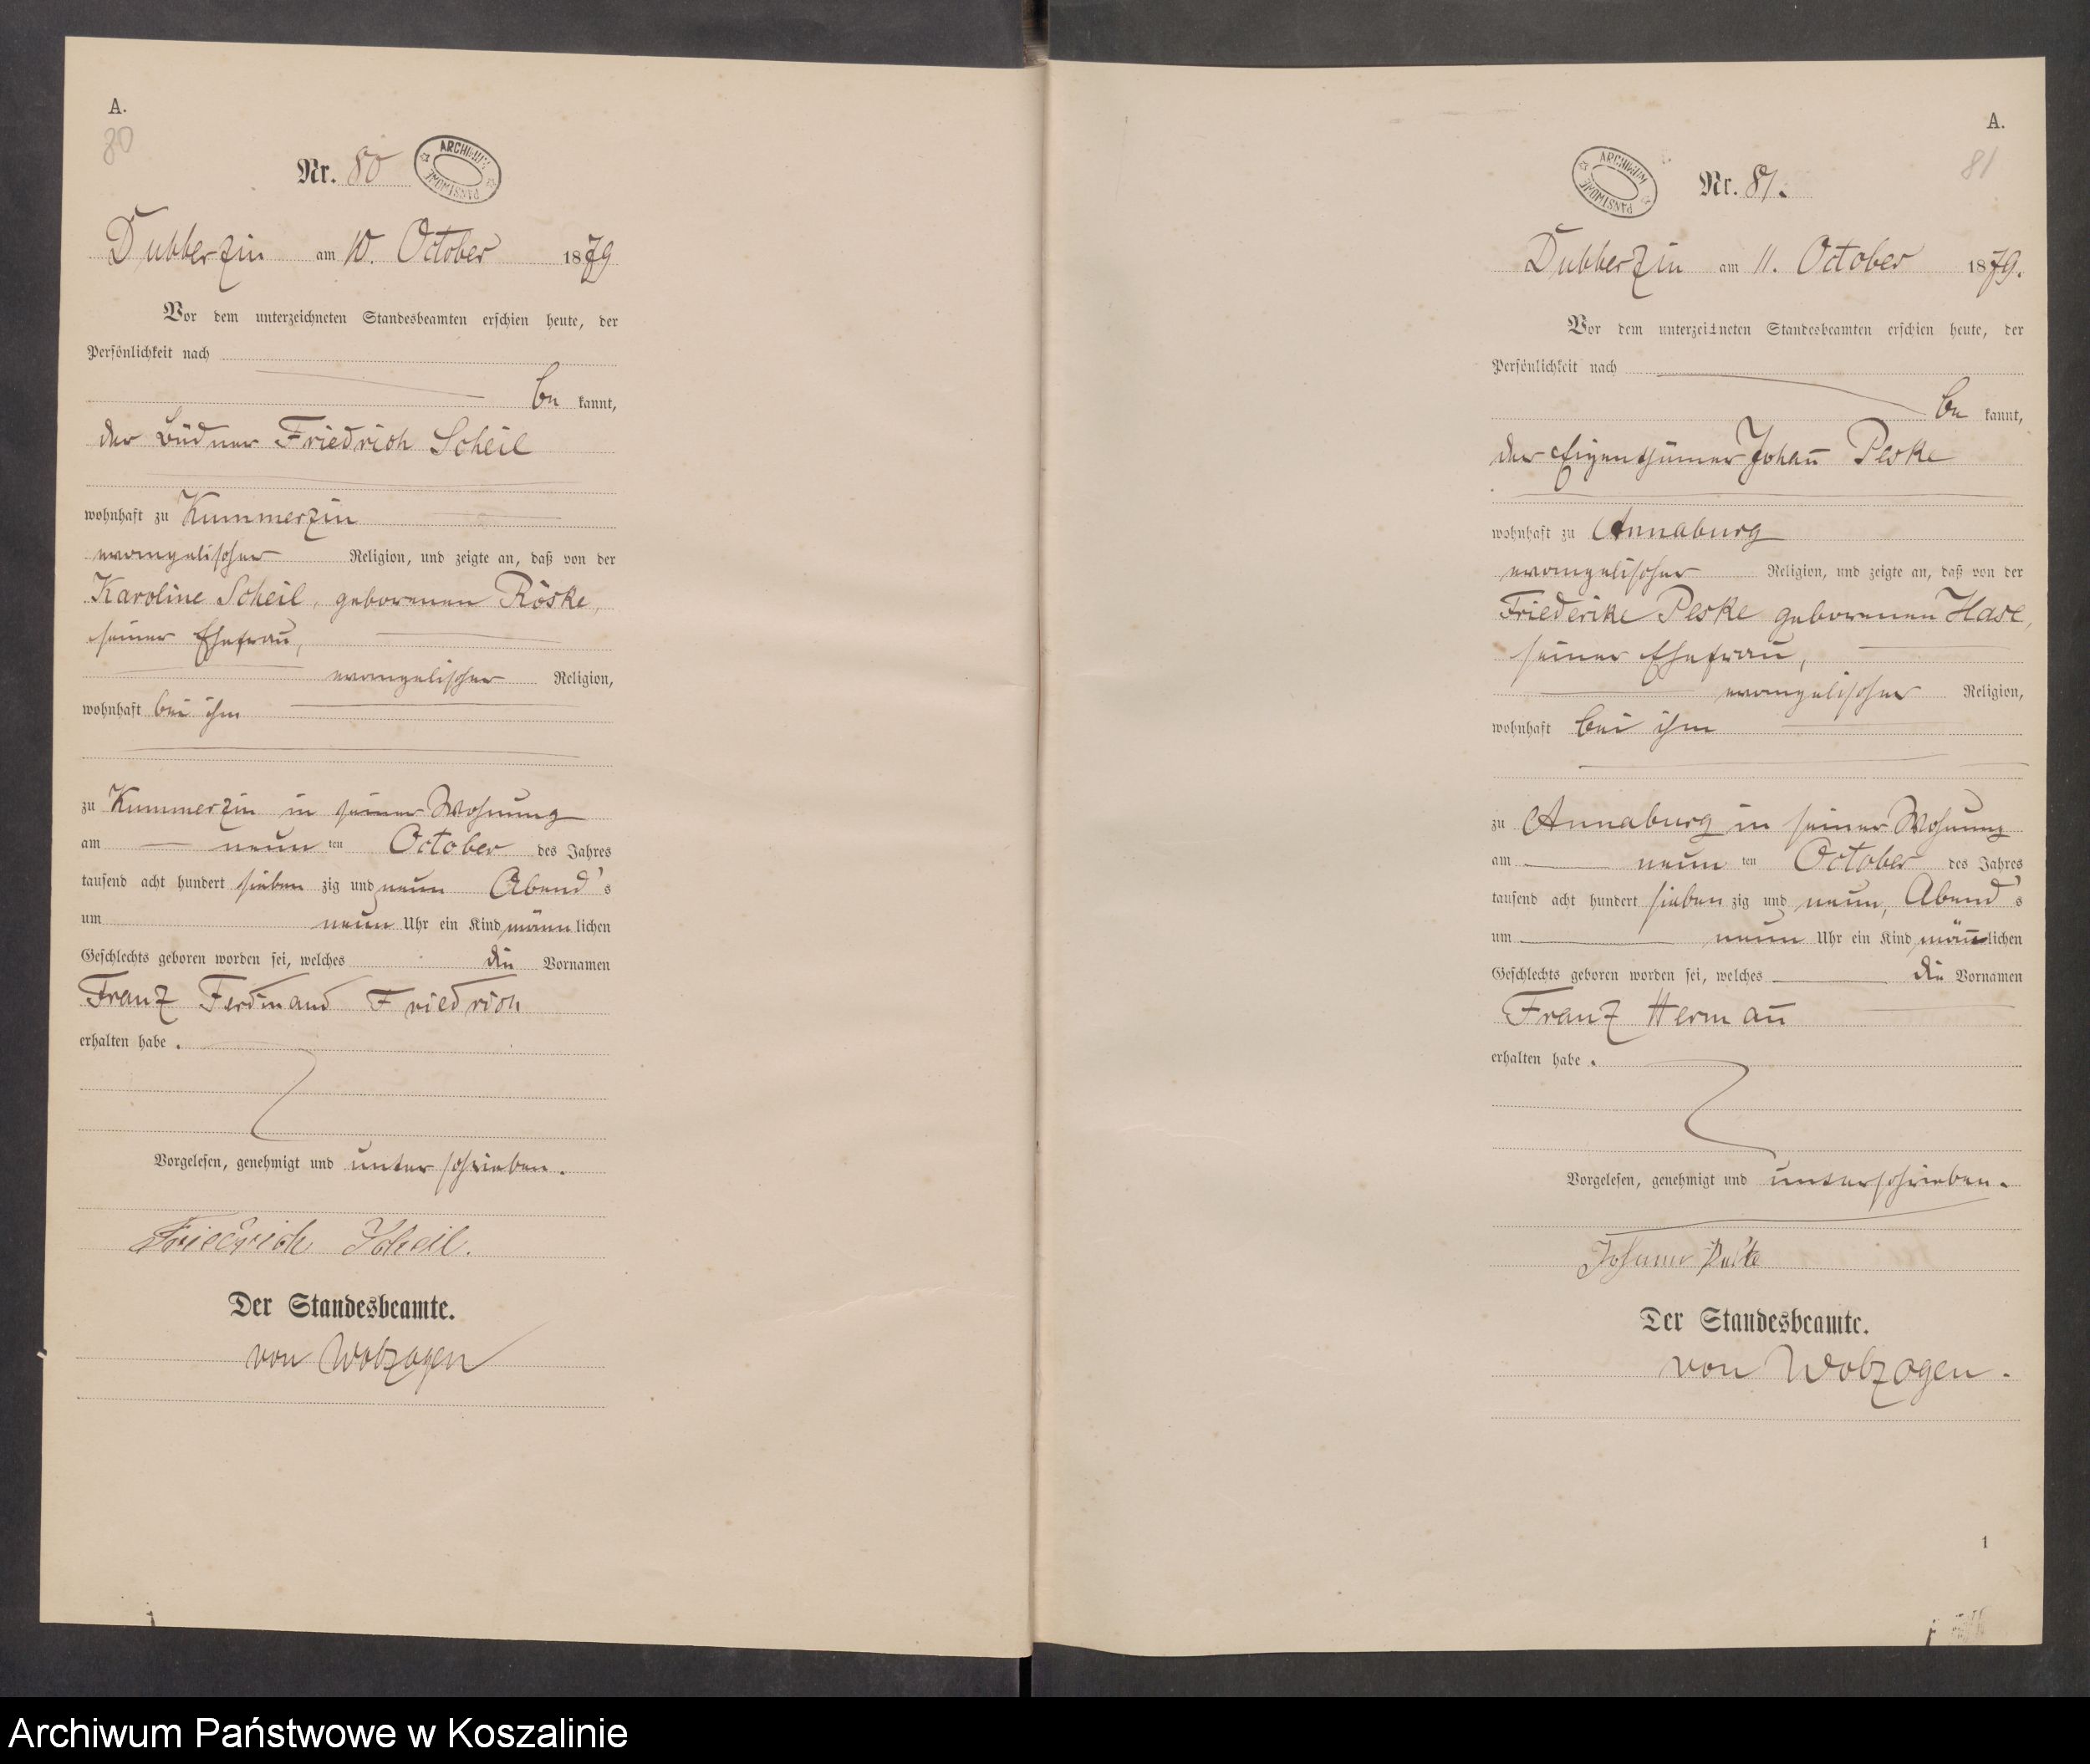 A.
80
Nr. 80
ARCHIWUM PAŃSTWOWE
Dubberzin am 10. October 1879
Vor dem unterzeichneten Standesbeamten erschien heute, der
Persönlichkeit nach
be kannt,
der Büdner Friedrich Scheil
wohnhaft zu Kummerzin
evangelischer Religion, und zeigte an, daß von der
Karoline Scheil, geborenen Röske,
seiner Ehefrau,
evangelischer Religion,
wohnhaft bei ihm
zu Kummerzin in seiner Wohnung
am neun ten October des Jahres
tausend acht hundert sieben zig und neun Abend's
um neun Uhr ein Kind männ lichen
Geschlechts geboren worden sei, welches die Vornamen
Franz Ferdinand Friedrich
erhalten habe.
Vorgelesen, genehmigt und unterschrieben.
Friedrich Scheil.
Der Standesbeamte.
von Wolzogen
A.
81
ARCHIWUM PAŃSTWOWE
Nr. 81.
Dubberzin am 11. October 1879.
Vor dem unterzeichneten Standesbeamten erschien heute, der
Persönlichkeit nach
be kannt,
der Eigenthümer Johan̅ Peske
wohnhaft zu Annaburg
evangelischer Religion, und zeigte an, daß von der
Friederike Peske geborenen Hase,
seiner Ehefrau,
evangelischer Religion,
wohnhaft bei ihm
zu Annaburg in seiner Wohnung
am neun ten October des Jahres
tausend acht hundert sieben zig und neun, Abend's
um neun Uhr ein Kind män̅lichen
Geschlechts geboren worden sei, welches die Vornamen
Franz Herman̅
erhalten habe.
Vorgelesen, genehmigt und unterschrieben.
Johann Peske
Der Standesbeamte.
von Wolzogen.
1
Archiwum Państwowe w Koszalinie